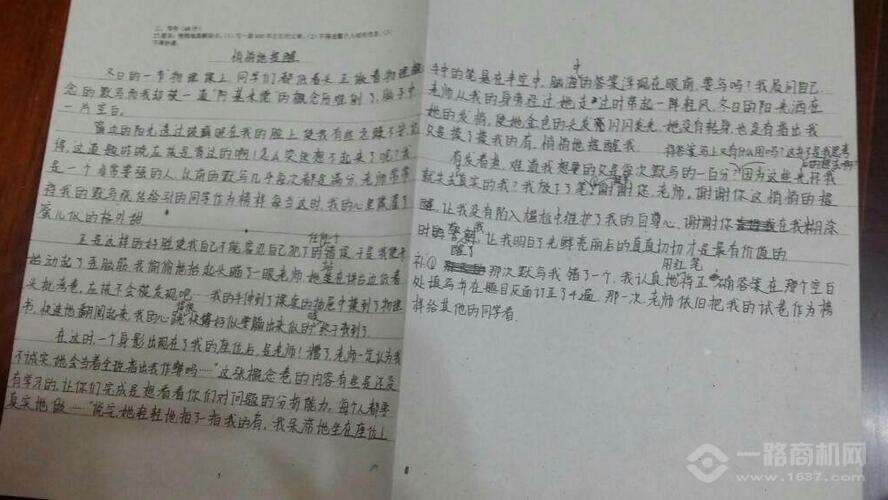 三、写作（40分）
悄悄地提醒
冬日的一节物理课上，同学们都低着头正做着物理概
念的默写而我却被一道"阿基米德"的概念所难到了，脑子中
一片空白。
的阳光透过玻璃照在我的脸上使我有些
得，这道题昨晚在孩是背过的啊！怎么突然想不起来了呢？我
是一个非常要强的人，以前的默写几乎每次都是满分，老师常常
将我的默写纸传给别的同学作为榜样每当这时，我的心里
蜜儿似的格外甜
正是这样的好胜使我自己不能容忍自己犯下的错误于是我便开
始动起了歪脑筋，我偷偷地抬起头瞄了一眼老师，她坐在讲台边低着
头批考卷，应该不会被发现吧……我的手伸到了课桌的抽屉中摸到了物理
书，快速地翻阅起来，我的心跳快得好似要蹦出来似的 终于我到了
在这时，一个身影出现在了我的座位后，是老师！糟了，老师一定认为我
不诚实，她会当着全班指出我作弊吗……"这张概念卷的内容有些是还没
有学习的，让你们完成是想看看你们对问题的分析能力，每个人都要
真实地做……"说完，她轻轻地拍了一拍我的肩，我呆滞地坐在座位上
手中的笔是在半空中，脑海中的答案浮现在眼前，要写吗？我反问自己，
老师从我的身旁经过，她走过时带起一阵轻风，冬日的阳光洒在
她的发梢，使她金色的头发闪闪发光，她没有转身，也没有指出我
只是拍了拍我的肩，悄悄地提醒我
将答案写上又有什么用吗？
有发看卷，难道我想要的只是每次默写的一百分？因为这些光环我
就失去真实的我？我放下了笔！谢谢您，老师，谢谢你这悄悄的提
醒，让我没有陷入尴尬中维护了我的自尊心，谢谢你在我糊涂
时的警醒了我，让我明日了光鲜亮丽后的真真切切才是最有价值的
补① 那次默写我错了一个，我认真地用红笔将正确答案在那个空白
处填写并在题目反面订正了4遍，那一次，老师依旧把我的试卷作为榜
样给其他的同学看.
1
一路商机网
www.1637.com